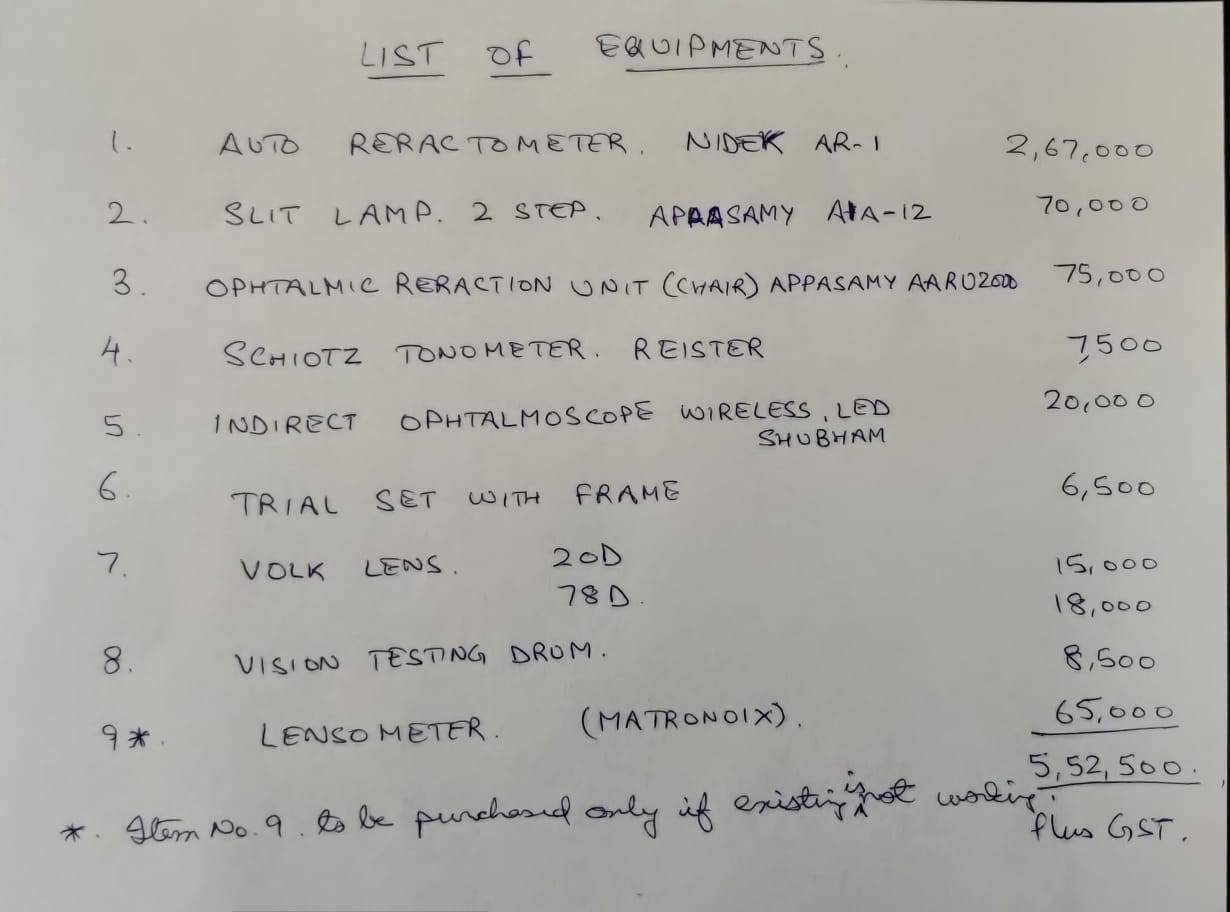 LIST OF EQUIPMENTS.
1. AUTO RERACTOMETER. NIDEK AR-1 2,67,000
2. SLIT LAMP. 2 STEP. APAASAMY AIA-12 70,000
3. OPHTALMIC RERACTION UNIT (CHAIR) APPASAMY AARU2000 75,000
4. SCHIOTZ TONOMETER. REISTER 7,500
5. INDIRECT OPHTALMOSCOPE WIRELESS, LED 20,000
SHUBHAM
6. TRIAL SET WITH FRAME 6,500
7. VOLK LENS. 20D 15,000
78D. 18,000
8. VISION TESTING DRUM. 8,500
9*. LENSOMETER. (MATRONOIX). 65,000
5,52,500.
*. Item No. 9. to be purchased only if existing is not working.
Plus GST.